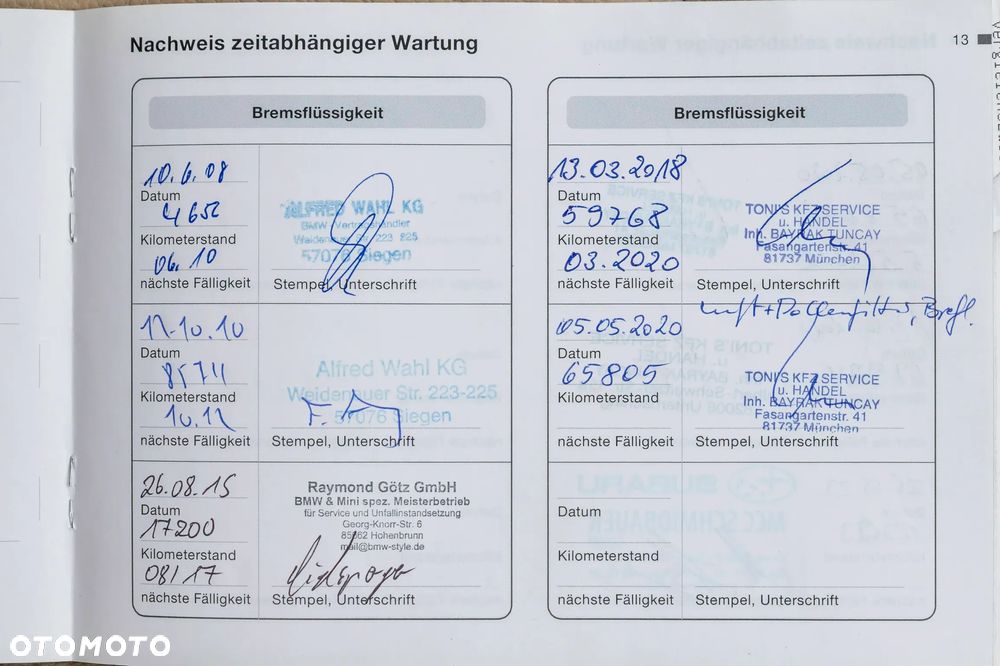 Nachweis zeitabhängiger Wartung
13
Bremsflüssigkeit
10.6.08
Datum
4656
Kilometerstand
06.10
nächste Fälligkeit
ALFRED WAHL KG
BMW Vertragshändler
Weidenauer Str. 223-225
57076 Siegen
Stempel, Unterschrift
Datum
8574
Kilometerstand
10.12
nächste Fälligkeit
Alfred Wahl KG
Weidenauer Str. 223-225
57076 Siegen
Stempel, Unterschrift
26.08.15
Datum
17200
Kilometerstand
08/17
nächste Fälligkeit
Raymond Götz GmbH
BMW & Mini spez. Meisterbetrieb
für Service und Unfallinstandsetzung
Georg-Knorr-Str. 6
85662 Hohenbrunn
mail@bmw-style.de
Stempel, Unterschrift
Bremsflüssigkeit
13.03.2018
Datum
59768
Kilometerstand
03.2020
nächste Fälligkeit
TONI'S KFZ SERVICE
u. HANDEL
Inh. BAYRAK TUNCAY
Fasangartenstr. 41
81737 München
Stempel, Unterschrift
Luft+Pollenfilter, Brefl.
05.05.2020
Datum
65805
Kilometerstand
nächste Fälligkeit
TONI'S KFZ SERVICE
u. HANDEL
Inh. BAYRAK TUNCAY
Fasangartenstr. 41
81737 München
Stempel, Unterschrift
Datum
Kilometerstand
nächste Fälligkeit
Stempel, Unterschrift
OTOMOTO